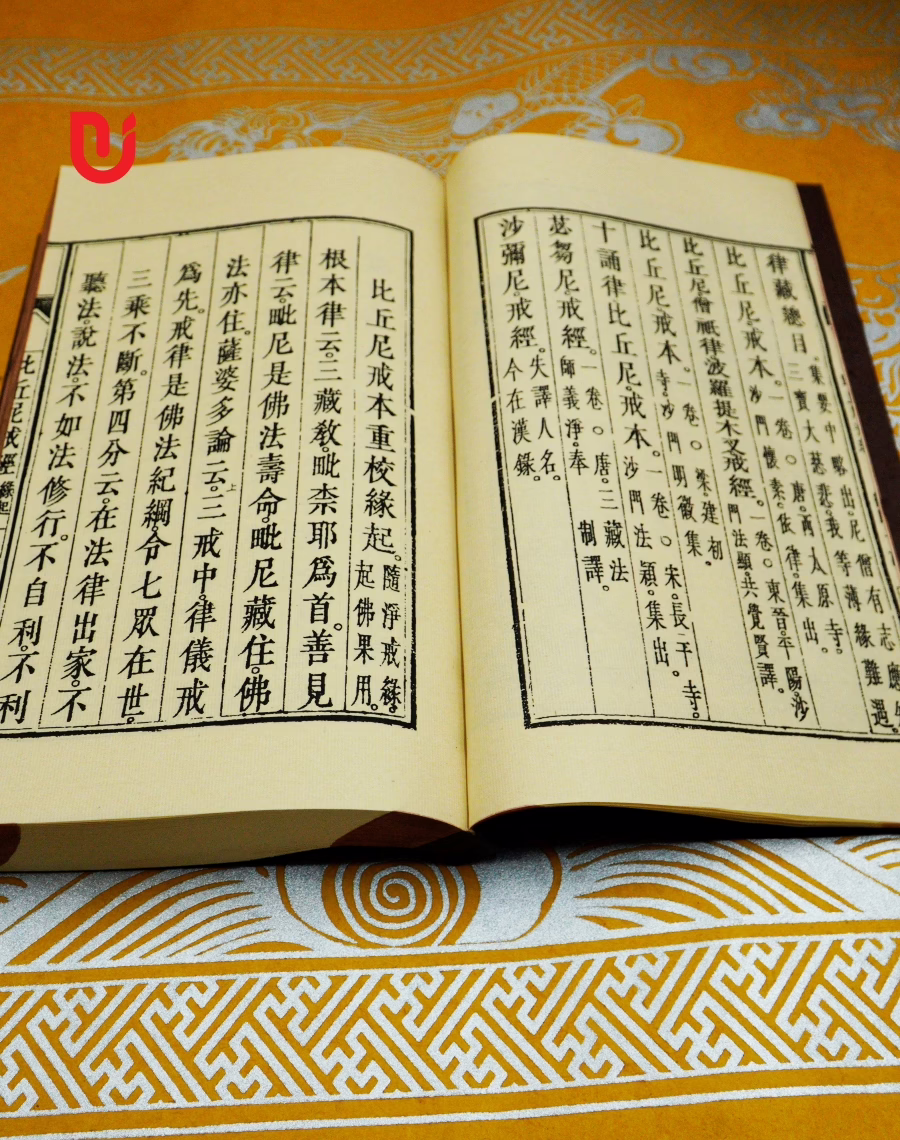 律藏總目。集要中略出。尼僧有志應
三寶大慈悲。我等薄緣難遇。
比丘尼戒本。一卷○唐。西太原寺。
沙門懷素。依律集出。
比丘尼僧祇律波羅提木叉戒經。一卷○東晉。平陽沙
門法顯共覺賢譯。
比丘尼戒本。一卷○梁。建初
寺。沙門明徽集。
十誦律比丘尼戒本。一卷○宋。長干寺。
沙門法頴。集出。
苾芻尼戒經。一卷○唐。三藏法
師義淨。奉制譯。
沙彌尼戒經。失譯人名。
今在漢錄。
比丘尼戒本重校緣起。隨淨戒緣。
起佛果用。
根本律云。三藏敎。毗柰耶爲首。善見
律云。毗尼是佛法壽命。毗尼藏住。佛
法亦住。薩婆多論云。三戒中。律儀戒
爲先。戒律是佛法紀綱。令七眾在世。
三乘不斷。第四分云。在法律出家。不
聽法說法。不如法修行。不自利。不利
比丘尼戒經 緣起